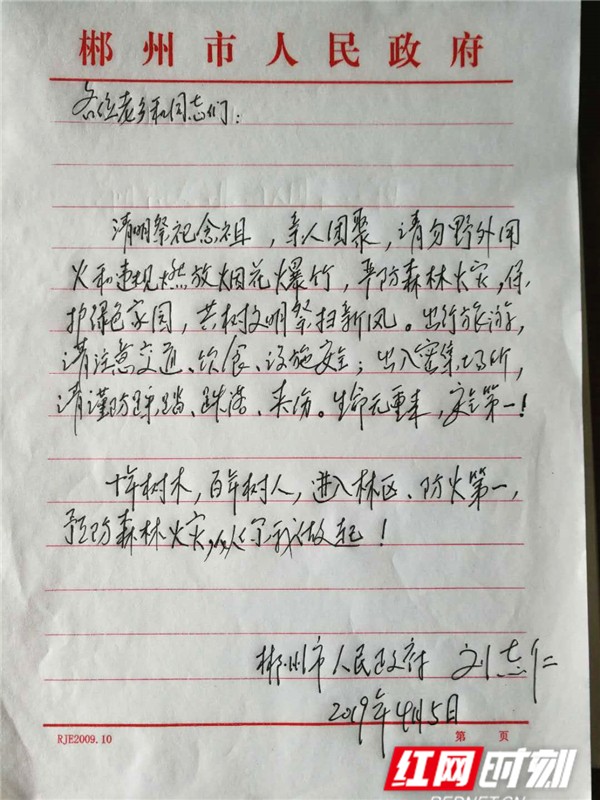 郴州市人民政府
各位老乡和同志们：
清明祭祀念祖，亲人团聚，请勿野外用
火和违规燃放烟花爆竹，严防森林火灾，保
护绿色家园，共树文明祭扫新风。出行旅游，
请注意交通、饮食、设施安全；出入密集场所，
请谨防踩踏、跌落、夹伤。生命无重来，安全第一！
十年树木，百年树人，进入林区、防火第一，
预防森林火灾，从你我做起！
郴州市人民政府 刘志仁
2019年4月5日
RJE2009.10 第 页
红网时刻